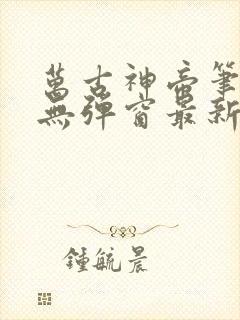 萬古神帝筆
無彈窗最新
鍾毓晨